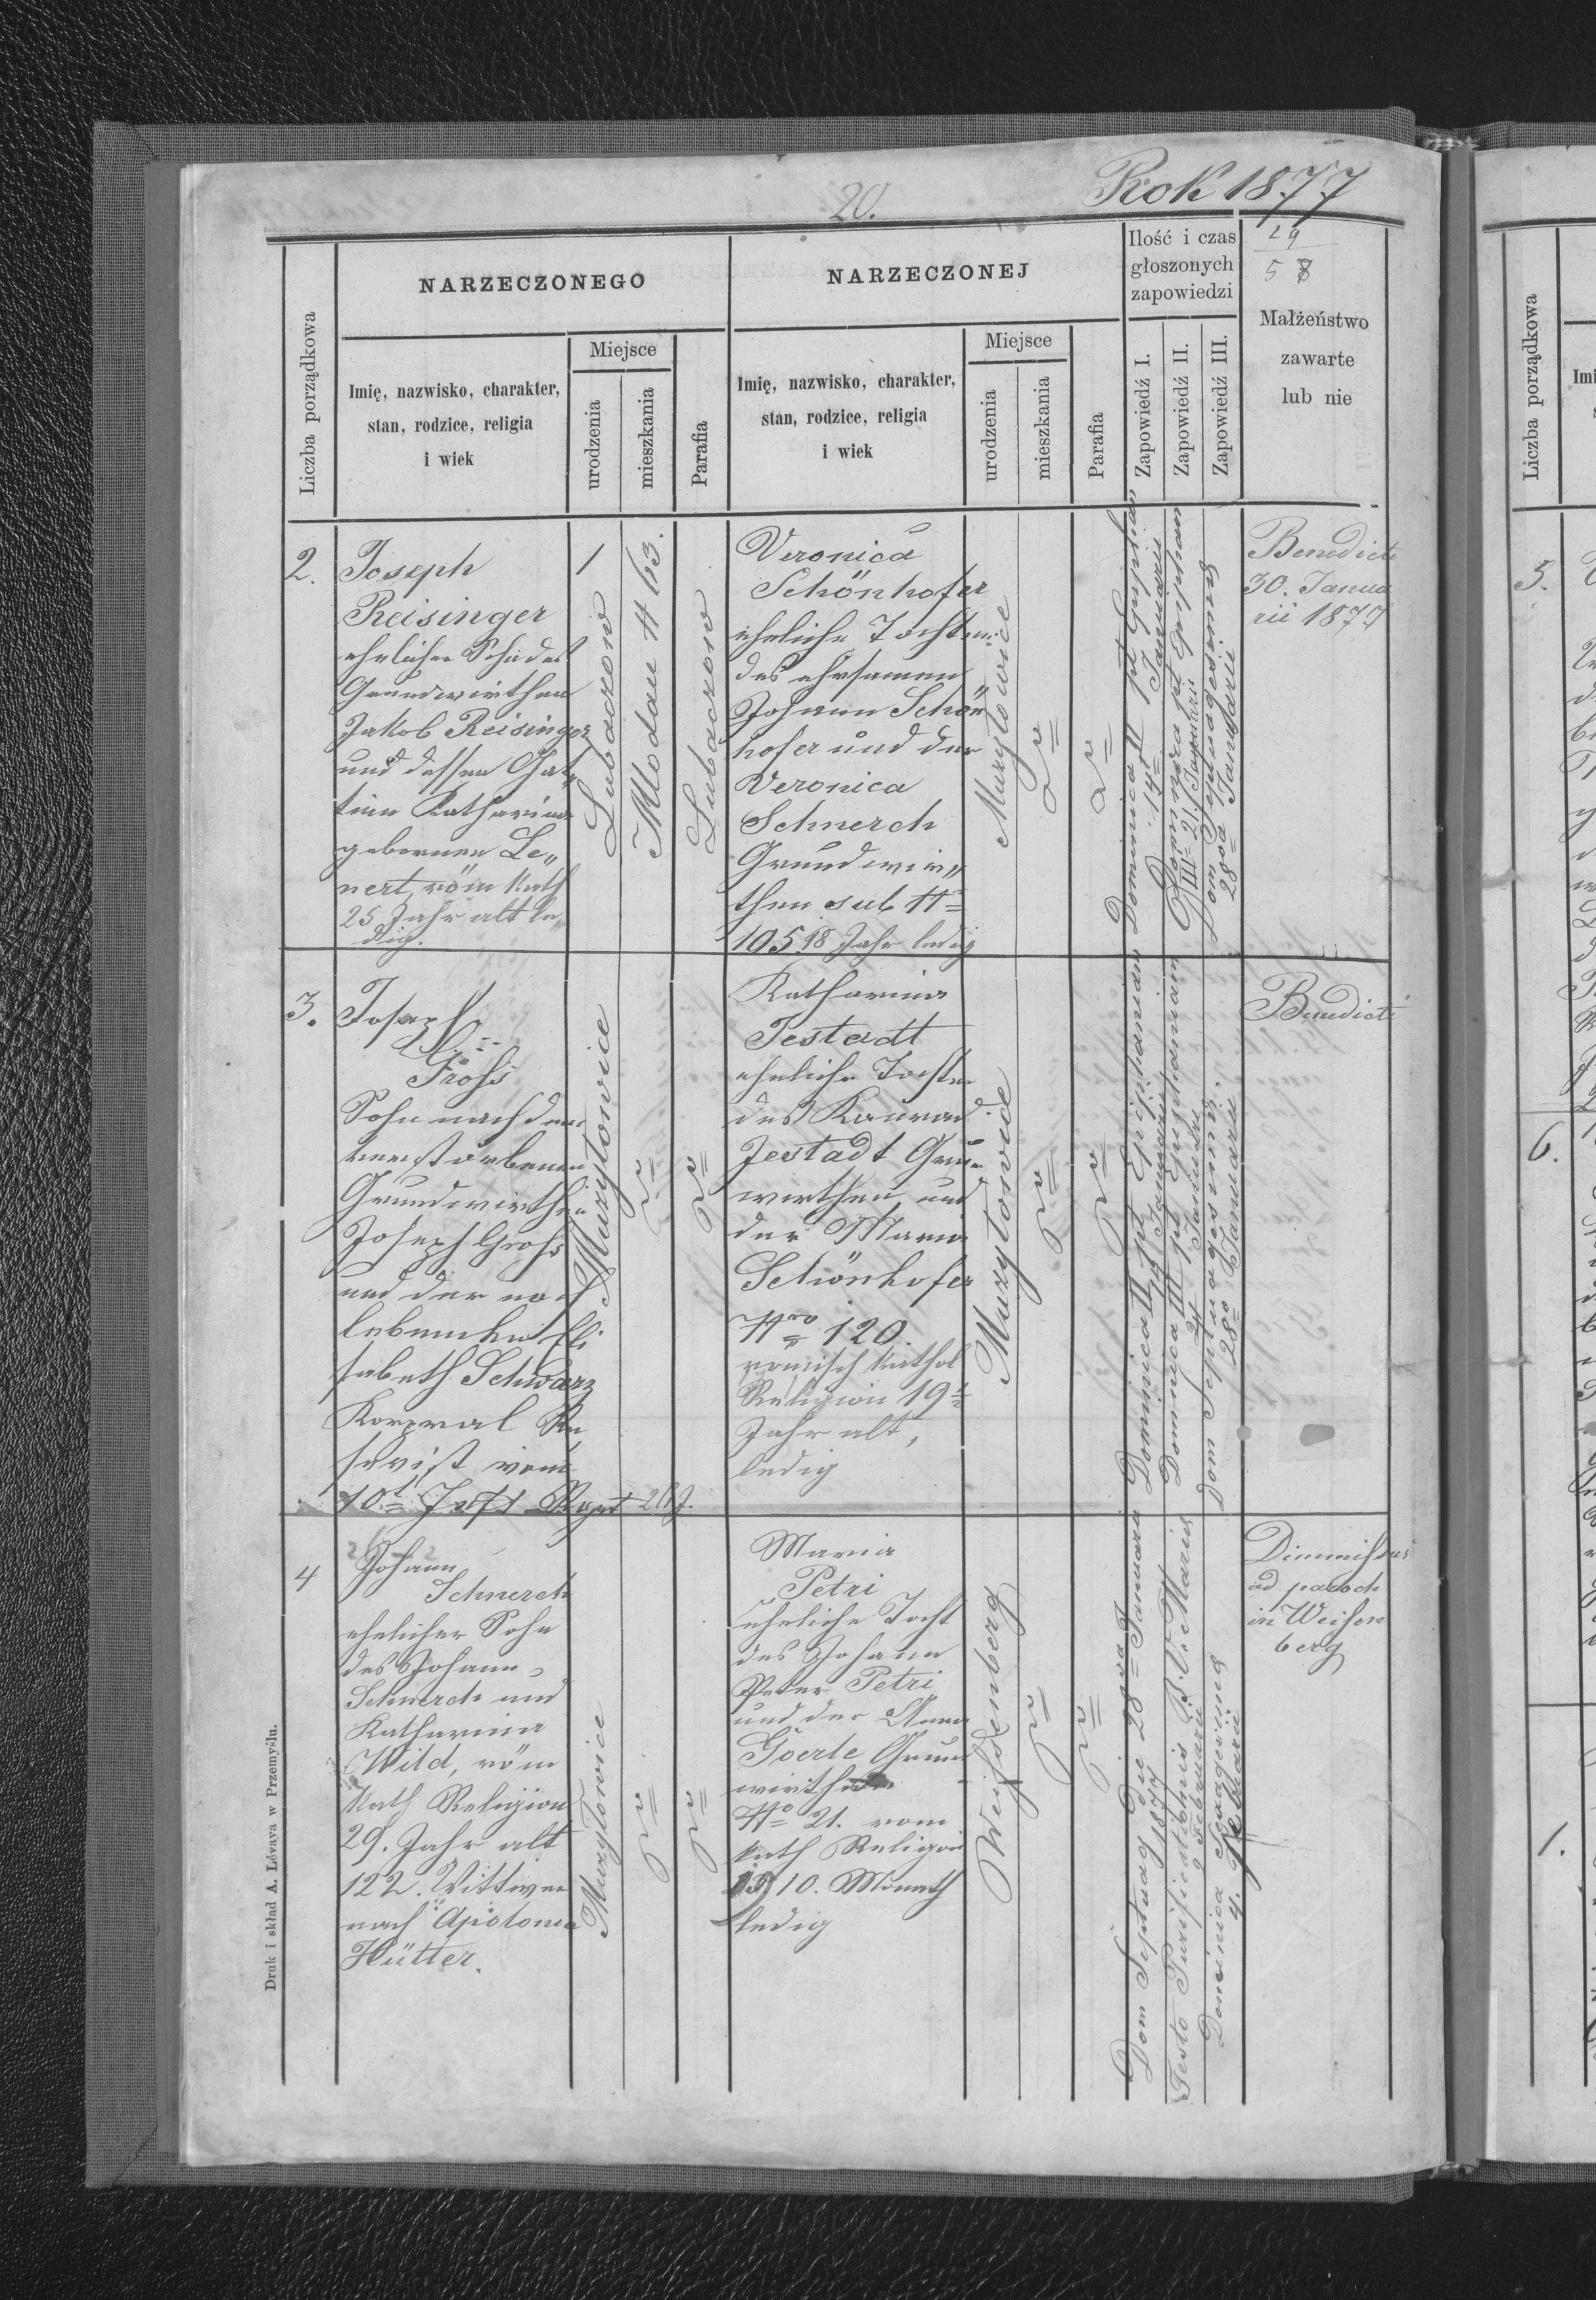 20.
Rok 1877
Liczba porządkowa
NARZECZONEGO
Imię, nazwisko, charakter,
stan, rodzice, religia
i wiek
Miejsce
urodzenia
mieszkania
Parafia
NARZECZONEJ
Imię, nazwisko, charakter,
stan, rodzice, religia
i wiek
Miejsce
urodzenia
mieszkania
Parafia
Ilość i czas
głoszonych
zapowiedzi
Zapowiedź I.
Zapowiedź II.
Zapowiedź III.
Małżeństwo
zawarte
lub nie
2.
Joseph
Reisinger
ehelicher
Grundwirthen
Jakob Reisinger
und dessen Gat„
tinn Katharina
gebornen Le„
nert, röm Kath
25 Jahr alt le„
dig.
Lubaczow
Mlodau N 63.
Lubaczow
Veronica
Schönhofer
eheliche Tochter
des ehrsamen
Johann Schön
hofer und der
Veronica
Schnerch
Grundwir„
then sub N
105 18 Jahr ledig
Mużyłowice
Dominica II pt Epiphan
14 Januarii
Dominica pt Epiphan
III 21 Januarii
Dom Septuagesima
28 Januarii
Benedicti
30. Janua
rii 1877
3.
Joseph
Grohs
Sohn nach dem
verstorbenen
Grundwirthen
Joseph Grohs
und der noch
lebenden Eli
sabeth Schwarz
Korporal Re
servist vom
10t
Mużyłowice
Katharina
Jestadt
eheliche Tochter
des Konrad
Jestadt Grun
wirthen und
der Maria
Schönhofer
Nro 120.
römisch kathol
Religion 19
Jahr alt,
ledig
Mużyłowice
Dominica II pt Epiphaniam
14 Januarii
Dominica III pt Epiphaniam
21 Januarii
Dom Septuagesima.
28 Januarii
Benedicti
4
Johann
Schnerch
ehelicher Sohn
des Johann
Schnerch und
Katharina
Wild, röm
Kath Religion
29. Jahr alt
122. Wittwer
nach Apolonia
Hütter.
Mużyłowice
Maria
Petri
eheliche Tocht
des Johann
Peter Petri
und der Anna
Goerle Grun
No 21. rom
kath Religion
10. Monath
ledig
Weissenberg
Dom Septuag die 28 Januarii
1877
Festo Purificationis B.V. Mariæ
2 Februarii
Dominica Sexagesima
4. Februarii
Dimmissus
ad paroch
in Weisen
berg
Druk i skład A. Lévaya w Przemyślu.
Liczba porządkowa
5.
6.
1.